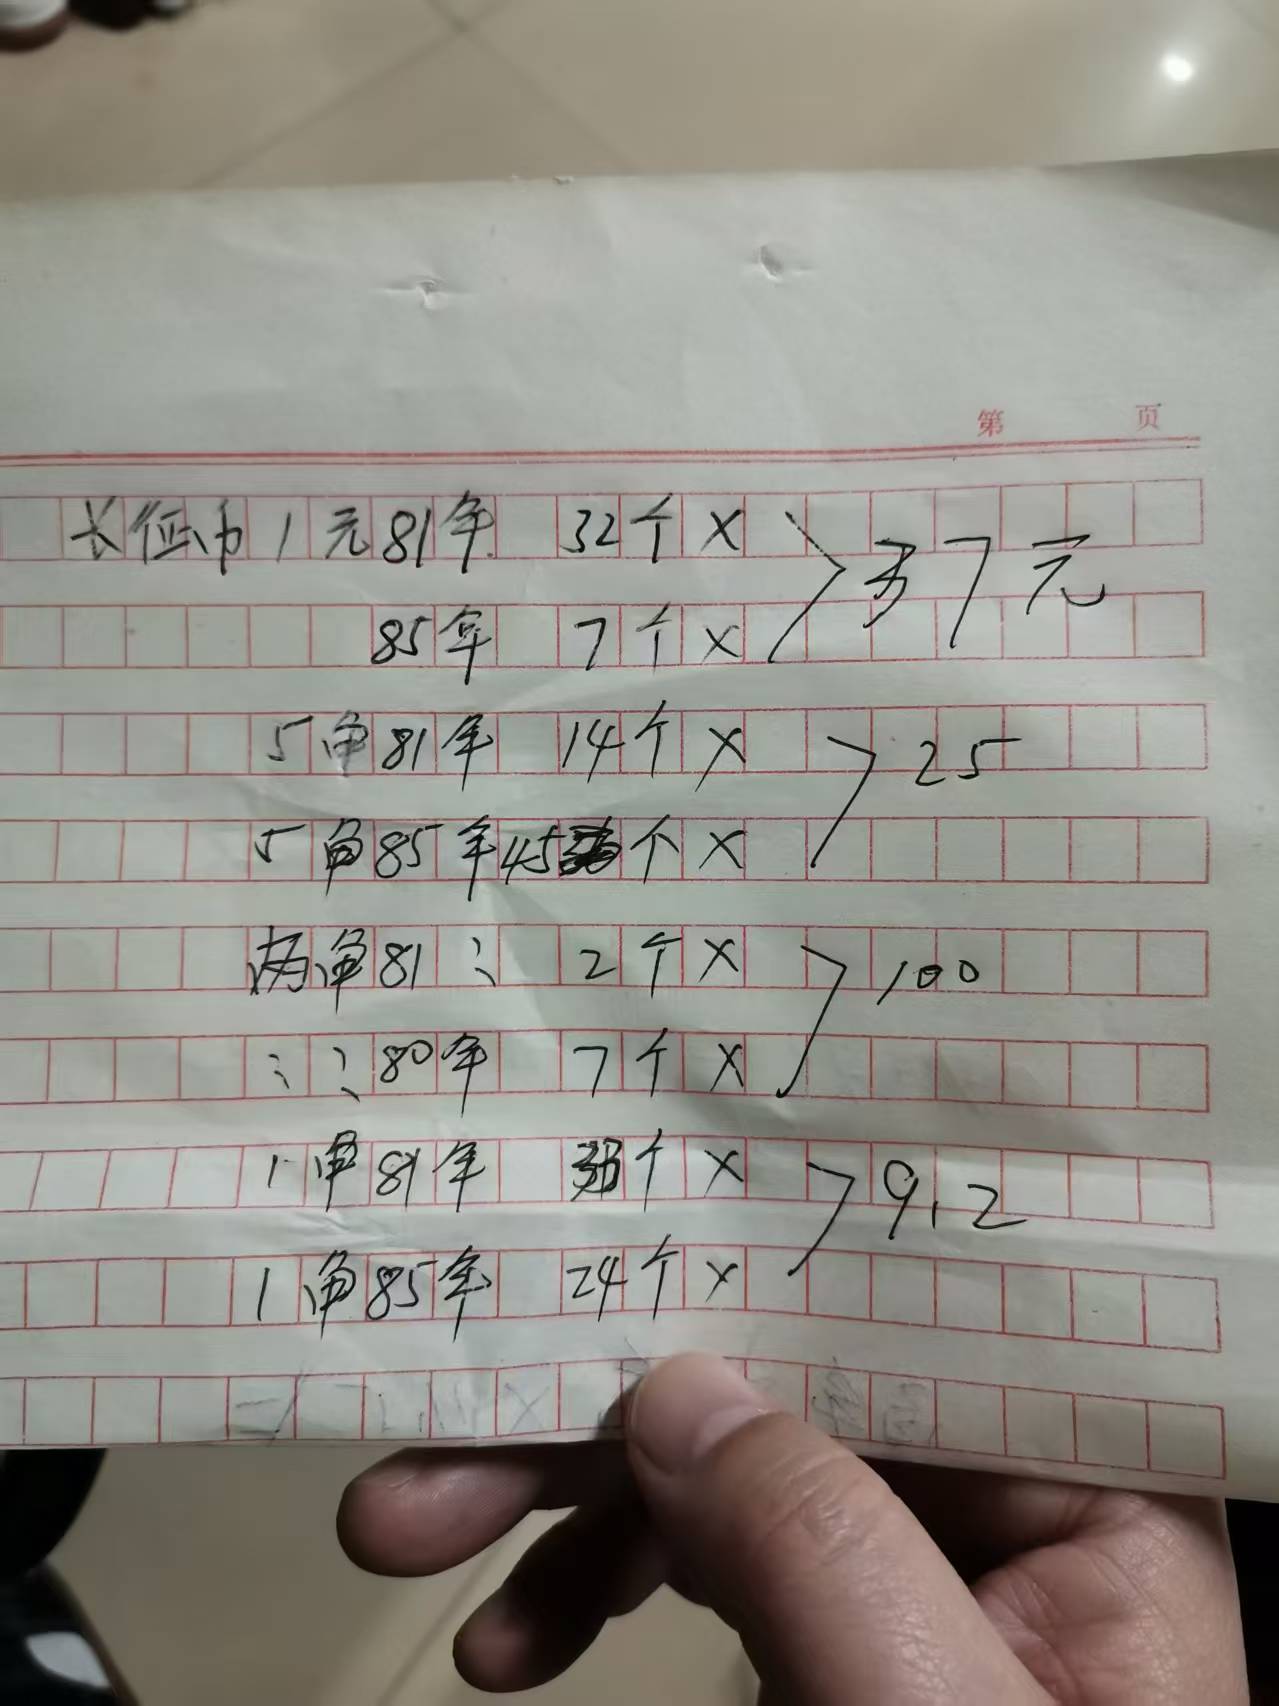 第 页
长征币1元81年 32个× 37元
85年 7个×
5角81年 14个× 25
5角85年45个×
两角81〃 2个× 100
〃〃80年 7个×
1角81年 个× 9.2
1角85年 24个×